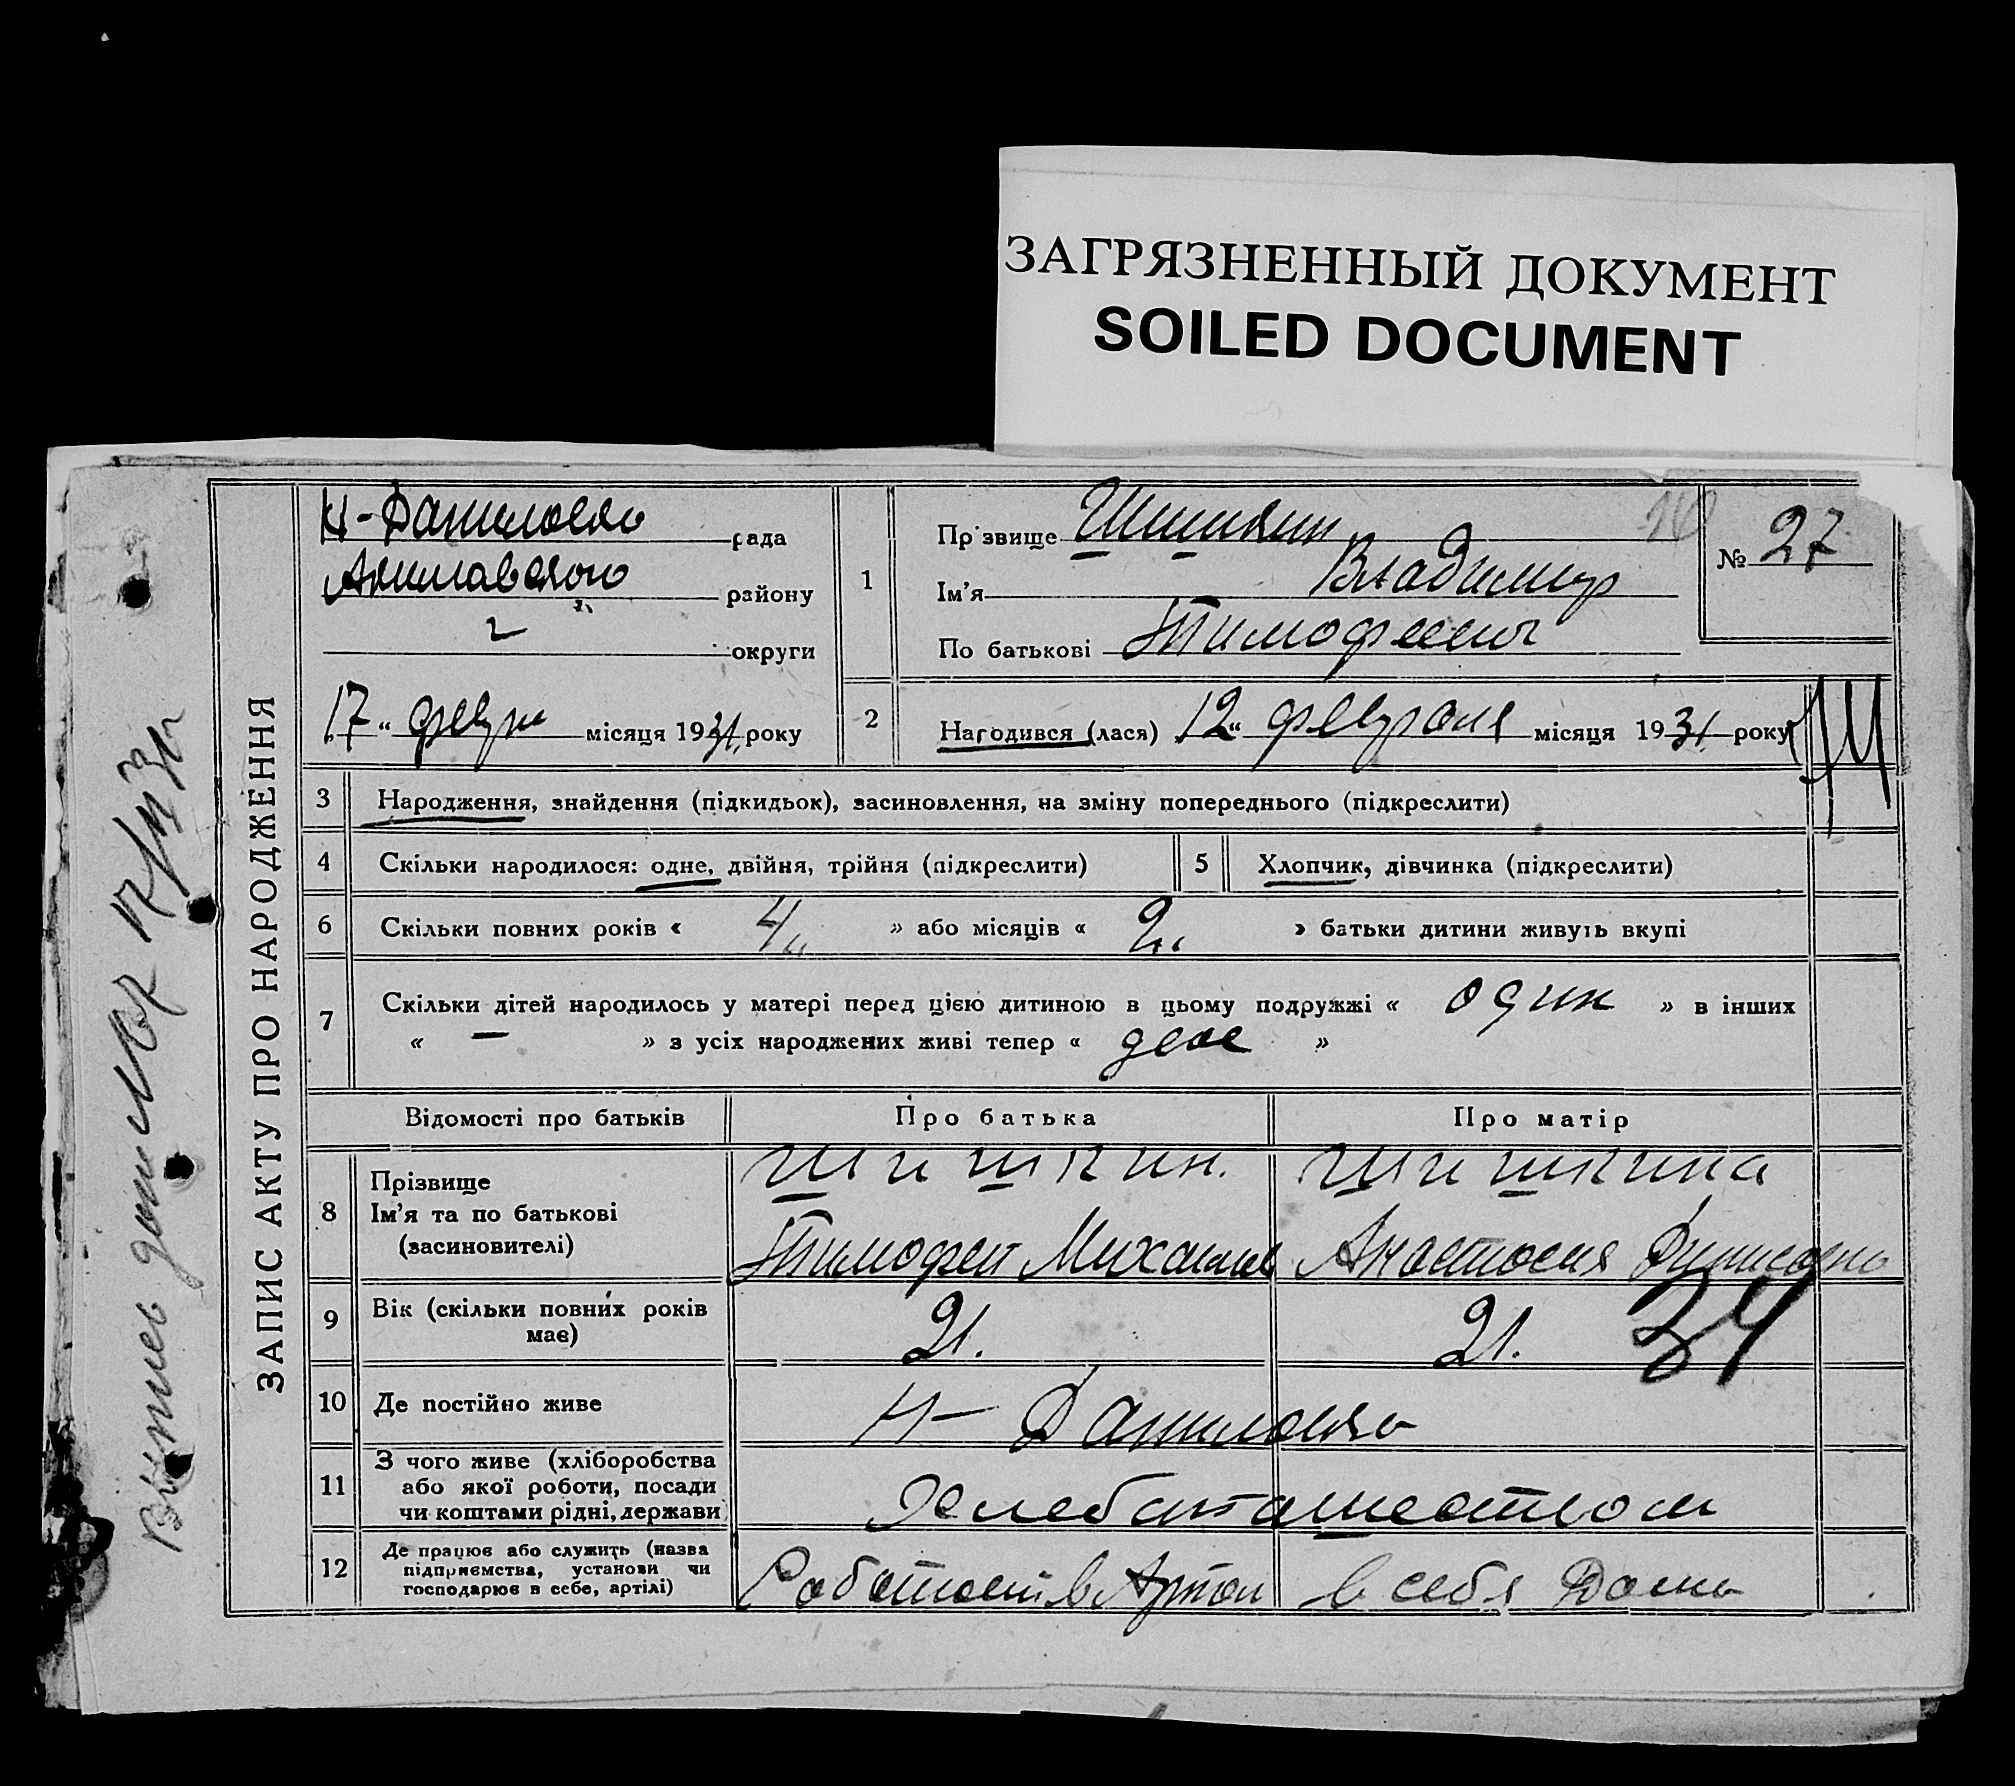 ЗАГРЯЗНЕННЫЙ ДОКУМЕНТ
SOILED DOCUMENT
ЗАПИС АКТУ ПРО НАРОДЖЕННЯ
Н-Даниловка рада
району
округи
17 " февра місяця 1931. року
1
Прізвище Шишкин
Ім'я Владимир
По батькові Тимофеевич
№ 27
2 Народився (лася) 12 " февраля місяця 1931. року
3 Народження, знайдення (підкидьок), засиновлення, на зміну попереднього (підкреслити)
4 Скільки народилося: одне, двійня, трійня (підкреслити)
5 Хлопчик, дівчинка (підкреслити)
6 Скільки повних років « 4 » або місяців « 2 » батьки дитини живуть вкупі
7 Скільки дітей народилось у матері перед цією дитиною в цьому подружжі « один » в інших
« — » з усіх народжених живі тепер « двое »
Відомості про батьків
Про батька
Про матір
8 Прізвище
Ім'я та по батькові
(засиновителі)
Шишкин.
Тимофей Михайлов
Шишкина
Анастасия
9 Вік (скільки повних років
має)
21.
21.
34
10 Де постійно живе
Н-Даниловка
11 З чого живе (хліборобства
або якої роботи, посади
чи коштами рідні, держави
12 Де працює або служить (назва
підприємства, установи чи
господарює в себе, артілі)
в Артели
в себя Дома